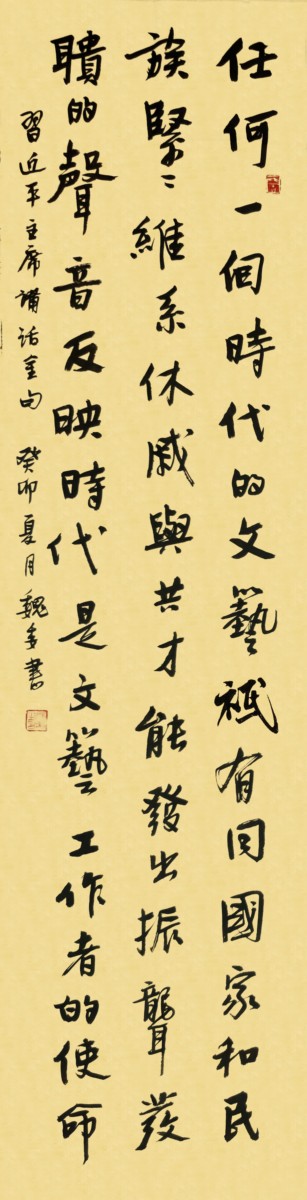 任何一個時代的文藝祇有同國家和民
族緊〻維系休戚與共才能發出振聾發
聵的聲音反映時代是文藝工作者的使命
習近平主席講話金句 癸卯夏月 魏書